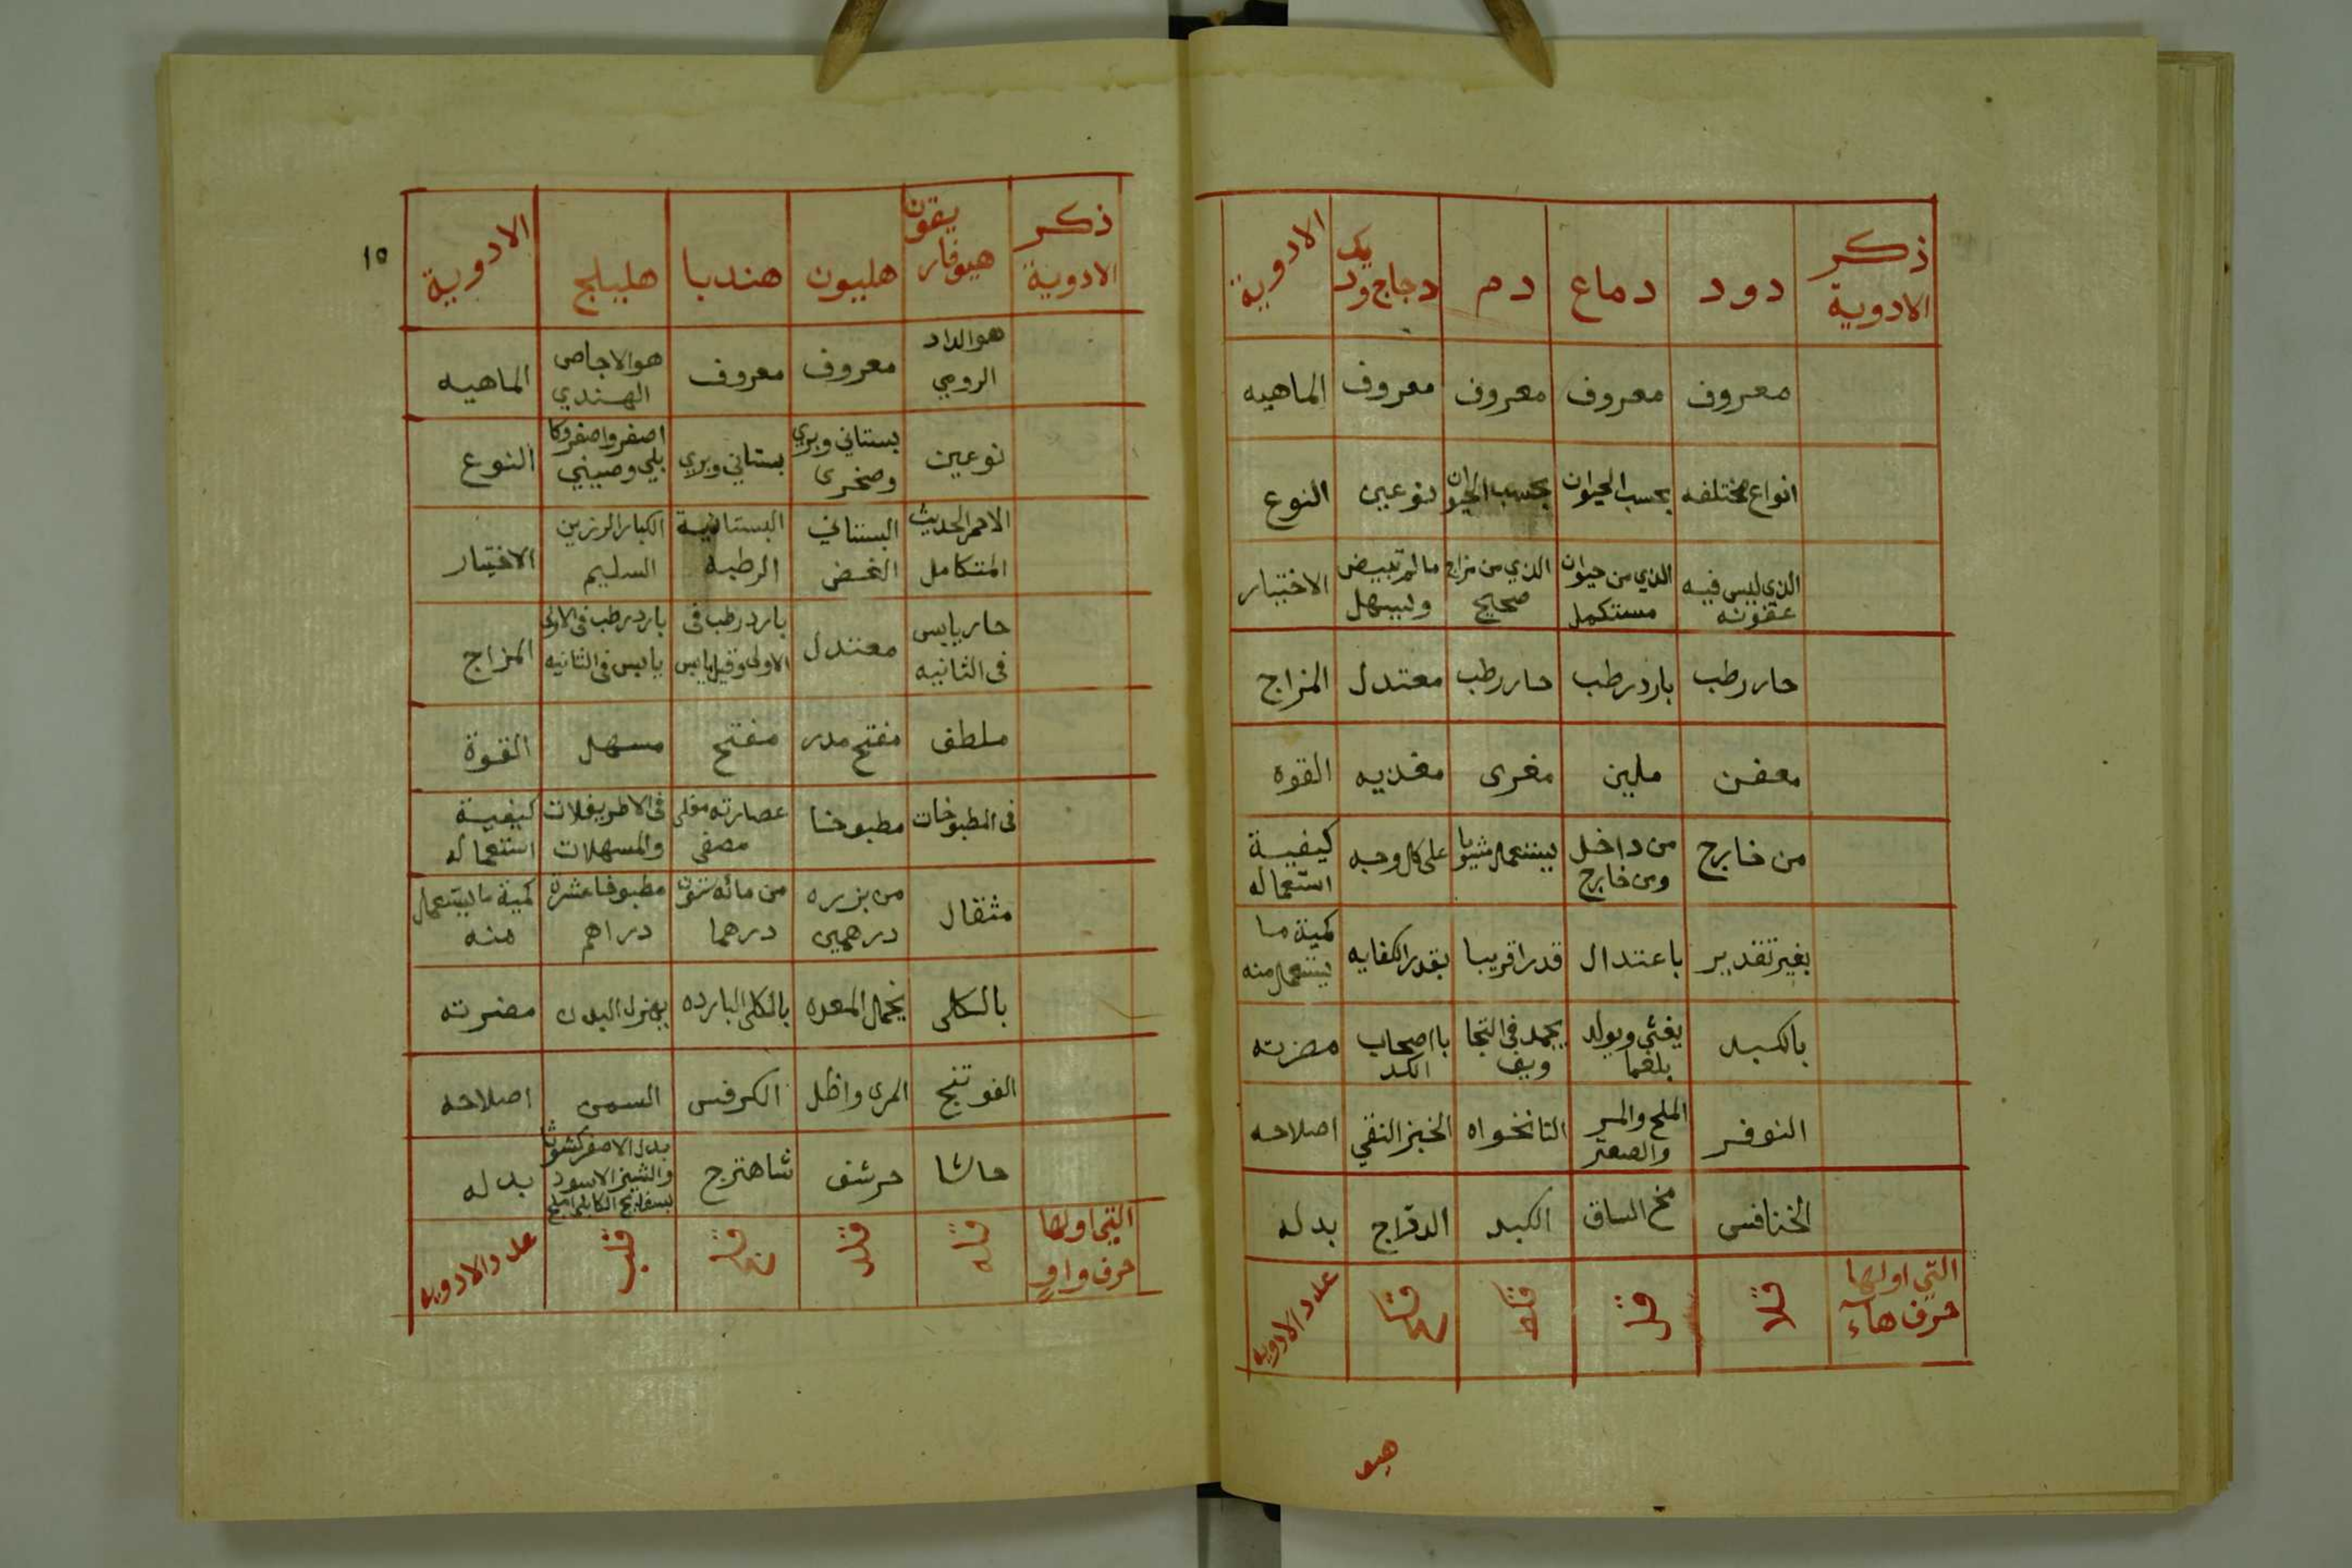 ذكر الادوية | دود | دماع | دم | دجاج وديك | الادوية
معروف | معروف | معروف | معروف | الماهيه
انواع مختلفه | بحسب الحيوان | بحسب الحيوان | نوعين | النوع
الذي ليس فيه عفونه | الذي من حيوان مستكمل | الذي من مزاج صحيح | مالم تبيض | الاختيار
حار رطب | بارد رطب | حار رطب | معتدل | المزاج
معفن | ملين | مغرى | مغذيه | القوه
من خارج | من داخل ومن خارج | يستعمل مشويا | على كل وجه | كيفية استعماله
بغير تقدير | باعتدال | قدرا قريبا | بقدر الكفايه | كمية ما يستعمل منه
بالكبد | يغثي ويولد بلغما | يجمد فى | با اصحاب الكد | مضرته
النوفر | الملح والمر والصعتر | النانخواه | الخبز النقي | اصلاحه
الخنافس | مخ الساق | الكبد | الدراج | بدله
التي اولها حرف هاء | عدد الادويه
هيو
١٥
ذكر الادوية | هيوفاريقون | هليون | هندبا | هليلج | الادوية
هو الداد الرومي | معروف | معروف | هو الاجاص الهندي | الماهيه
نوعين | بستاني وبري وصخرى | بستاني وبري | اصفر واصفر وكابلي وصيني | النوع
الاحمر الحديث المتكامل | البستاني الغض | البستانية الرطبه | الكبار الرزين السليم | الاختيار
حار يابس فى الثانيه | معتدل | بارد رطب فى الاولى وقيل يابس | بارد رطب فى الاولى يابس فى الثانيه | المزاج
ملطف | مفتح مدر | مفتح | مسهل | القوة
فى المطبوخات | مطبوخا | عصارته مغلى مصفى | فى الاطريفلات والمسهلات | كيفية استعماله
مثقال | من بزره درهمين | من مائه ستون درهما | مطبوخا عشرة دراهم | كمية ما يستعمل منه
بالكلى | يخمل المعده | بالكلى البارده | يهزل البدن | مضرته
الفوتنج | المرى واظل | الكرفس | السمن | اصلاحه
حاشا | حرشف | شاهترج | بدل الاصفر كشوثا | بدله
التي اولها حرف واو | قله | قلد | قلب | عدد الادويه